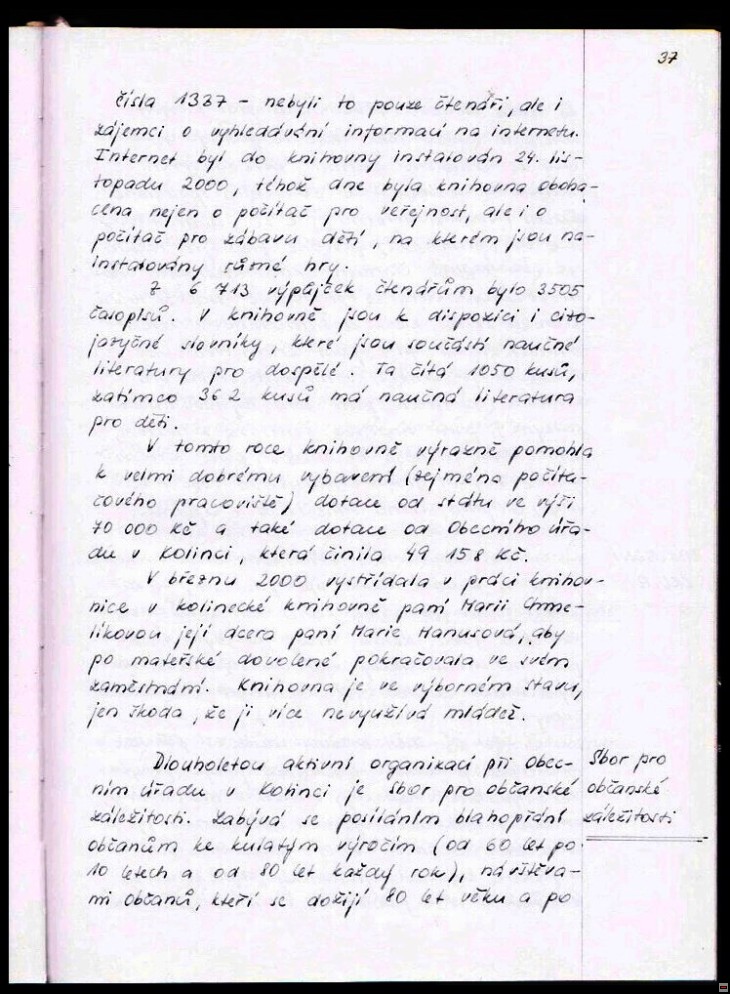 37
čísla 1387 – nebyli to pouze čtenáři, ale i
zájemci o vyhledávání informací na internetu.
Internet byl do knihovny instalován 24. lis-
topadu 2000, téhož dne byla knihovna oboha-
cena nejen o počítač pro veřejnost, ale i o
počítač pro zábavu dětí, na kterém jsou na-
instalovány různé hry.
Z 6 713 výpůjček čtenářům bylo 3505
časopisů. V knihovně jsou k dispozici i cizo-
jazyčné slovníky, které jsou součástí naučné
literatury pro dospělé. Ta čítá 1050 kusů,
zatímco 362 kusů má naučná literatura
pro děti.
V tomto roce knihovně výrazně pomohla
k velmi dobrému vybavení (zejména počíta-
čového pracoviště) dotace od státu ve výši
70 000 Kč a také dotace od Obecního úřa-
du v Kolinci, která činila 49 158 Kč.
V březnu 2000 vystřídala v práci knihov-
nice v kolinecké knihovně paní Marii Chme-
líkovou její dcera paní Marie Hanusová, aby
po mateřské dovolené pokračovala ve svém
zaměstnání. Knihovna je ve výborném stavu,
jen škoda, že ji více nevyužívá mládež.
Dlouholetou aktivní organizací při obec-
ním úřadu v Kolinci je Sbor pro občanské
záležitosti. Zabývá se posíláním blahopřání
občanům ke kulatým výročím (od 60 let po
10 letech a od 80 let každý rok), návštěva-
mi občanů, kteří se dožijí 80 let věku a po
Sbor pro
občanské
záležitosti